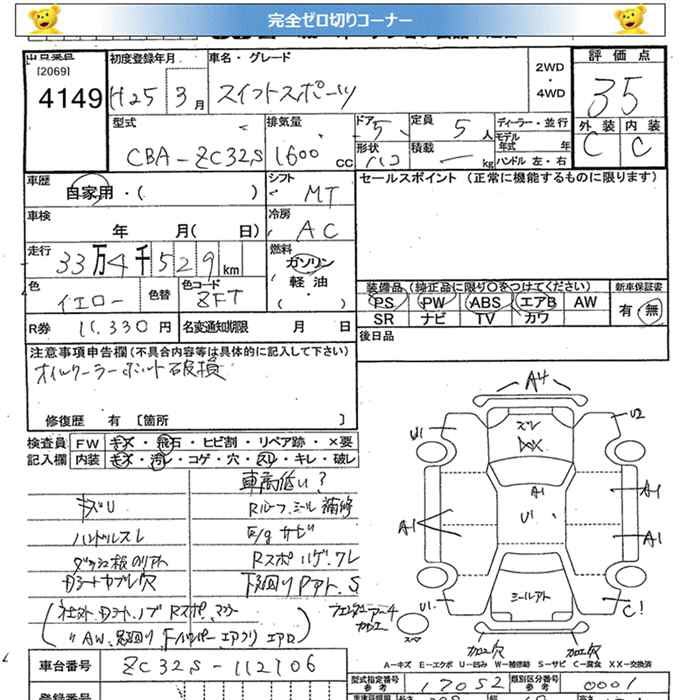 完全ゼロ切りコーナー
出品番号
[2069]
4149
初度登録年月
H25 3月
車名・グレード
スイフトスポーツ
2WD
・
4WD
評価点
35
型式
CBA-ZC32S
排気量
1600 CC
ドア 5
形状 ハコ
定員 5人
積載 ー kg
ディーラー・並行
モデル年式 年
ハンドル 左・右
外装 内装
C C
車歴
自家用・( )
シフト
MT
セールスポイント (正常に機能するものに限ります)
車検
年 月( 日)
冷房
AC
走行
33万4千529km
燃料
ガソリン
軽油
・( )・
色
イエロー
色替
色コード
ZFT
装備品 (純正品に限り○をつけてください)
PS PW ABS エアB AW
SR ナビ TV カワ
新車保証書
有・無
R券 11,330円
名変通知期限 月 日
後日品
注意事項申告欄 (不具合内容等は具体的に記入して下さい)
オイルクーラーボルト破損
修復歴 有 [箇所 ]
検査員 FW キズ・飛石・ヒビ割・リペア跡・×要
記入欄 内装 キズ・汚レ・コゲ・穴・スレ・キレ・破レ
車高低い?
キズU
Rルーフ、ミール補修
ハンドルスレ
E/gサビ
Rスポハゲ、ワレ
下回りPアト、S
A4
U1
U2
ズレ
XX
A1
A1
U1
A1
A1
U1
シールアト
C1
スペア
加工穴
加工穴
A-キズ E-エクボ U-凹み W-補修跡 S-サビ C-腐食 XX-交換済
車台番号
ZC32S-112106
型式指定番号
参考
17052
類別区分番号
参考
0001
登録番号